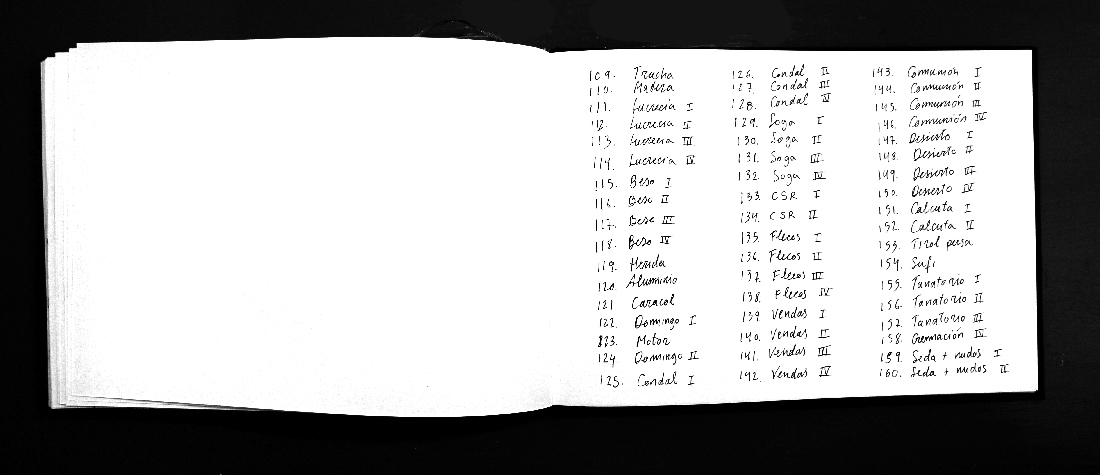 109. Trucha
110. Madera
111. Lucrecia I
112. Lucrecia II
113. Lucrecia III
114. Lucrecia IV
115. Beso I
116. Beso II
117. Beso III
118. Beso IV
119. Herida
120. Aluminio
121 Caracol
122. Domingo I
123. Motor
124. Domingo II
125. Condal I
126. Condal II
127. Condal III
128. Condal IV
129. Soga I
130. Soga II
131. Soga III
132. Soga IV
133. CSR I
134. CSR II
135. Flecos I
136. Flecos II
137. Flecos III
138. Flecos IV
139. Vendas I
140. Vendas II
141. Vendas III
142. Vendas IV
143. Comunión I
144. Comunión II
145. Comunión III
146. Comunión IV
147. Desierto I
148. Desierto II
149. Desierto III
150. Desierto IV
151. Calcuta I
152. Calcuta II
153. Tirol
154. Sufi
155. Tanatorio I
156. Tanatorio II
157. Tanatorio III
158. Germación IV
159. Seda + nudos I
160. Seda + nudos II